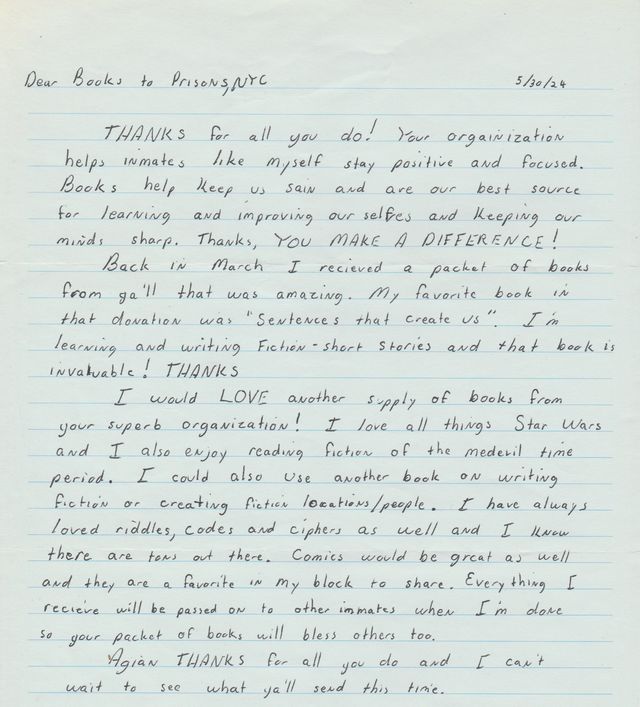 Dear Books to Prisons, NYC 5/30/24
THANKS for all you do! Your orgainization
helps inmates like myself stay positive and focused.
Books help keep us sain and are our best source
for learning and improving our selfes and keeping our
minds sharp. Thanks, YOU MAKE A DIFFERENCE!
Back in March I recieved a packet of books
from ya'll that was amazing. My favorite book in
that donation was "Sentences that create us". I'm
learning and writing fiction-short stories and that book is
invaluable! THANKS
I would LOVE another supply of books from
your superb organization! I love all things Star Wars
and I also enjoy reading fiction of the medevil time
period. I could also use another book on writing
fiction or creating fiction locations/people. I have always
loved riddles, codes and ciphers as well and I know
there are tons out there. Comics would be great as well
and they are a favorite in my block to share. Everything I
recieve will be passed on to other immates when I'm done
so your packet of books will bless others too.
Agian THANKS for all you do and I can't
wait to see what ya'll send this time.